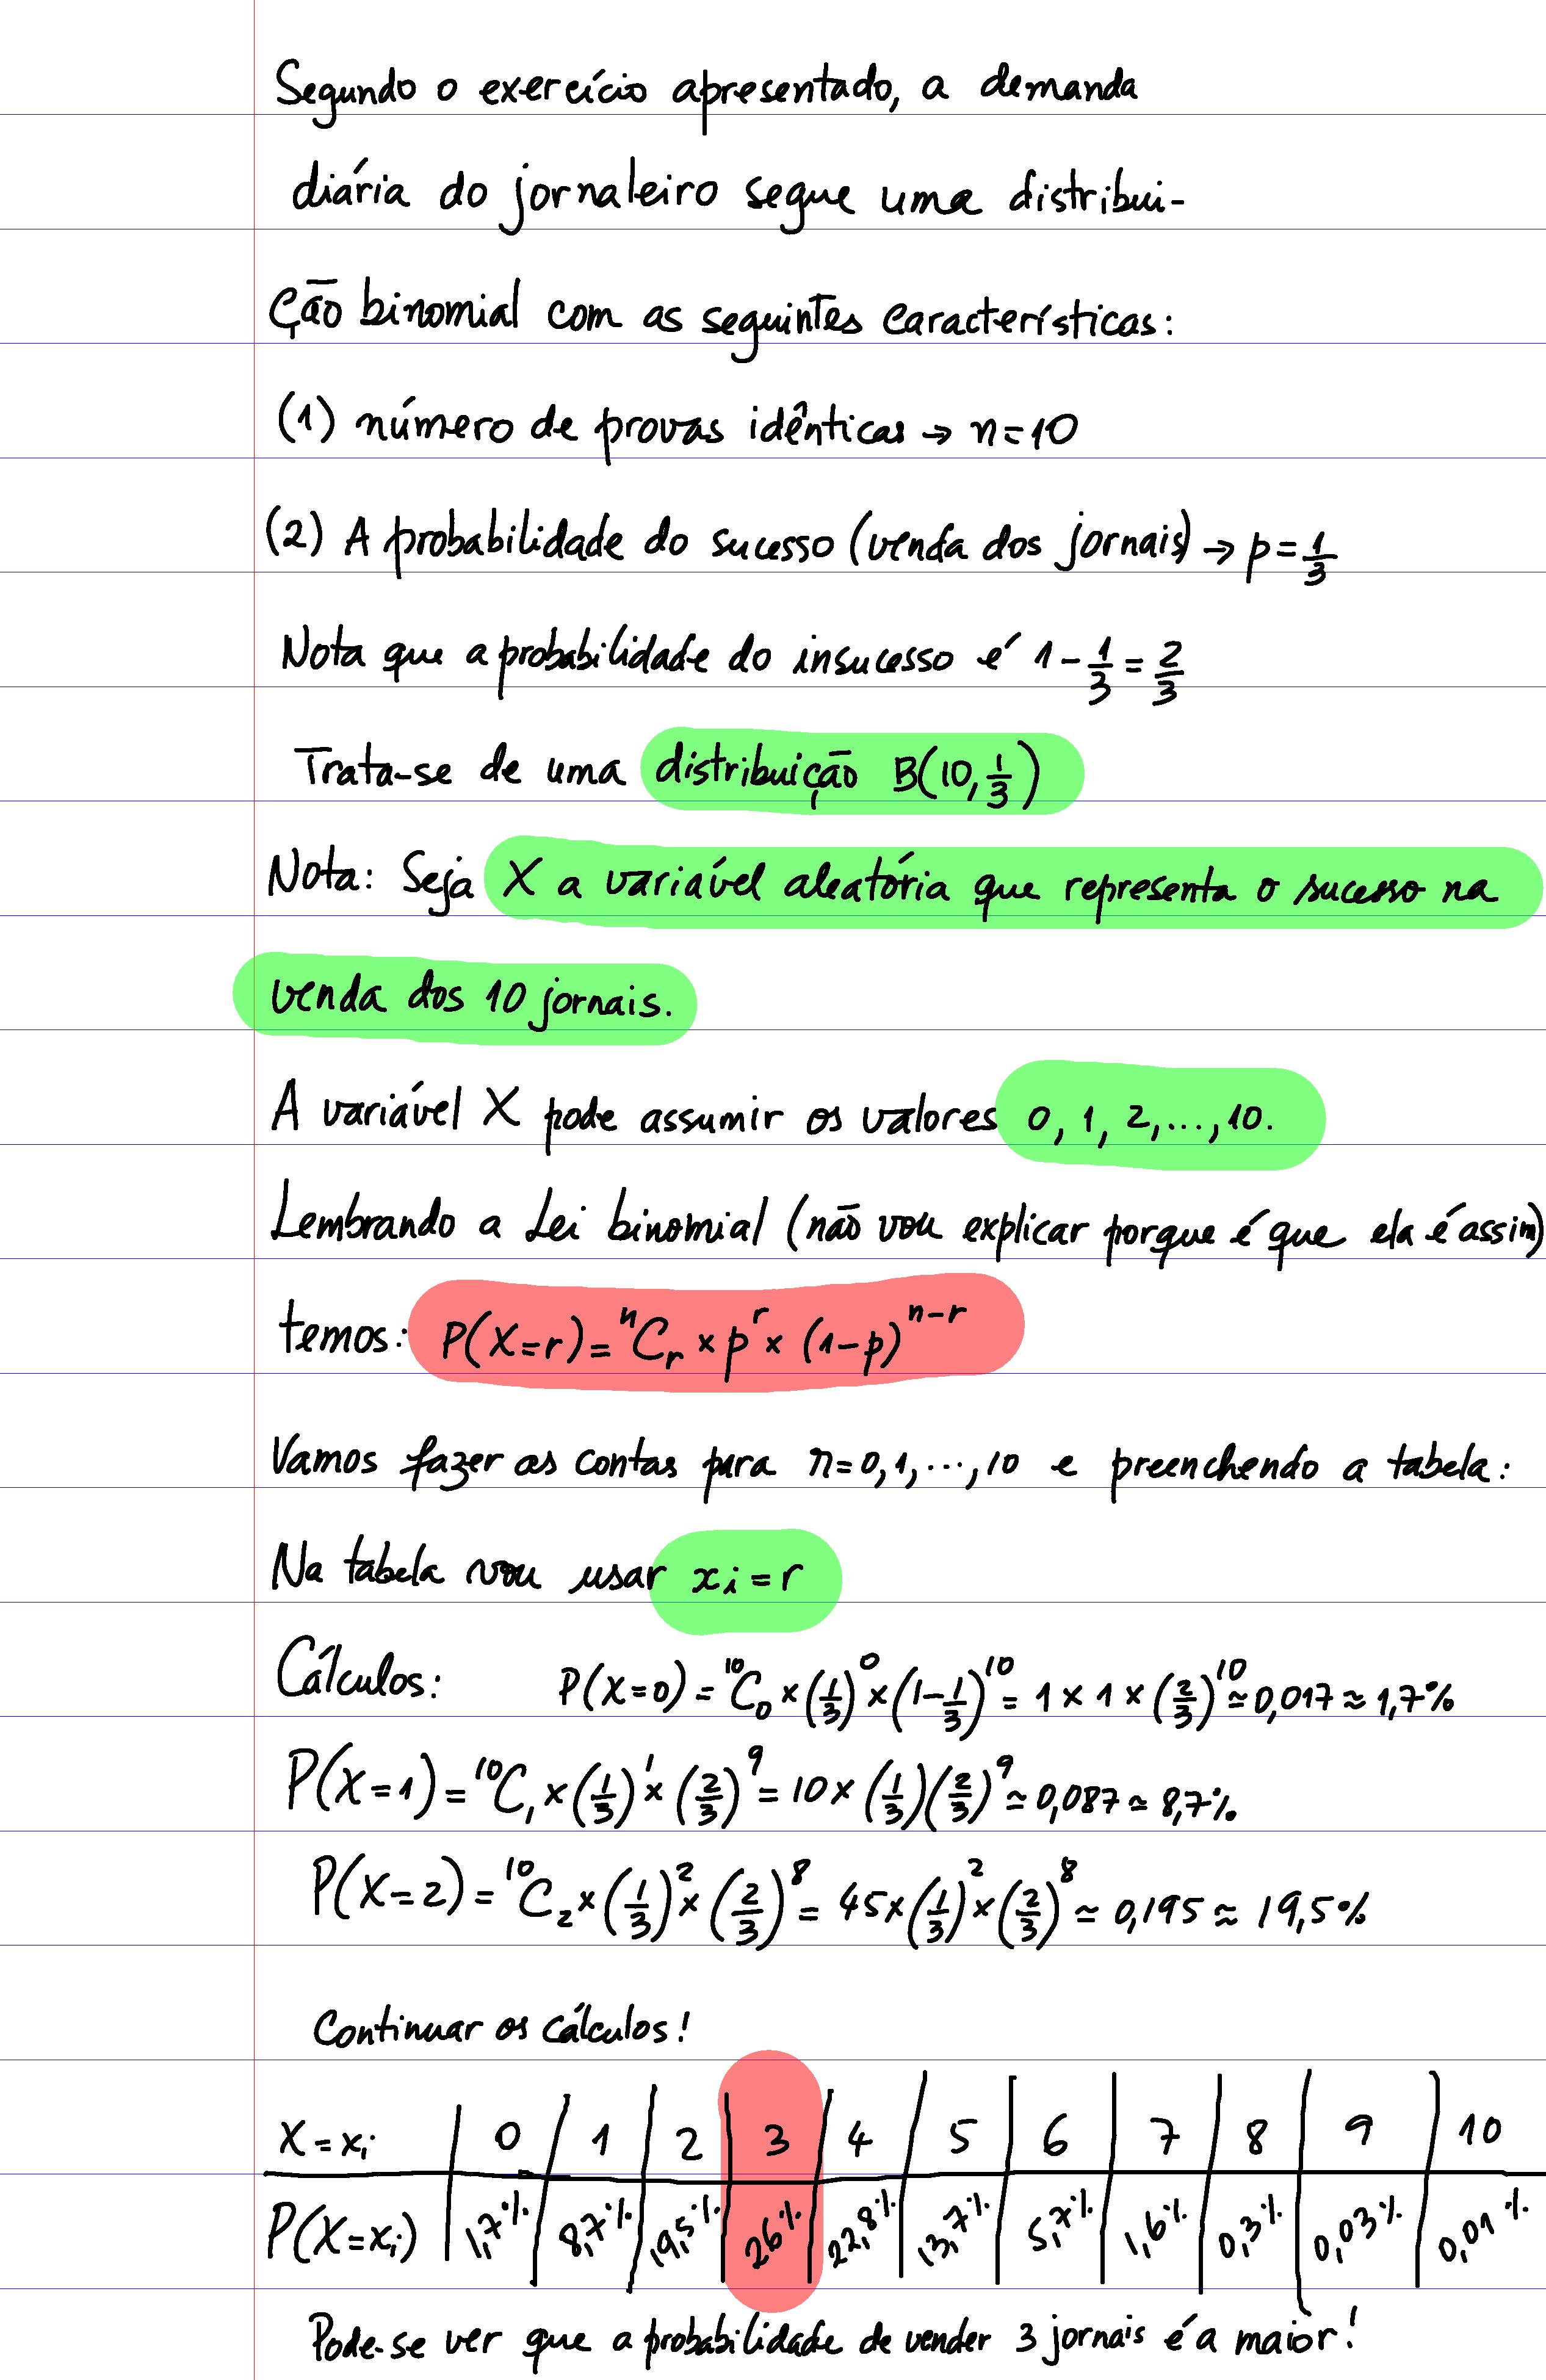 Segundo o exercício apresentado, a demanda
diária do jornaleiro segue uma distribui-
ção binomial com as seguintes características:
(1) número de provas idênticas → n=10
(2) A probabilidade do sucesso (venda dos jornais) → p=1/3
Nota que a probabilidade do insucesso é 1-1/3=2/3
Trata-se de uma distribuição B(10,1/3)
Nota: Seja X a variável aleatória que representa o sucesso na
venda dos 10 jornais.
A variável X pode assumir os valores 0, 1, 2,...,10.
Lembrando a Lei binomial (não vou explicar porque é que ela é assim)
temos: P(X=r)=ⁿCᵣ × pʳ × (1-p)ⁿ⁻ʳ
Vamos fazer as contas para r=0,1,...,10 e preenchendo a tabela:
Na tabela vou usar xᵢ=r
Cálculos: P(X=0)=¹⁰C₀×(1/3)⁰×(1-1/3)¹⁰=1×1×(2/3)¹⁰≃0,017≈1,7%
P(X=1)=¹⁰C₁×(1/3)¹×(2/3)⁹=10×(1/3)(2/3)⁹≃0,087≃8,7%
P(X=2)=¹⁰C₂×(1/3)²×(2/3)⁸=45×(1/3)²×(2/3)⁸≃0,195≃19,5%
Continuar os cálculos!
X=xᵢ 0 1 2 3 4 5 6 7 8 9 10
P(X=xᵢ) 1,7% 8,7% 19,5% 26% 22,8% 13,7% 5,7% 1,6% 0,3% 0,03% 0,01%
Pode-se ver que a probabilidade de vender 3 jornais é a maior!